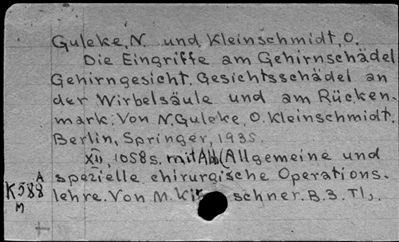 Guleke, N. und Kleinschmidt, O.
Die Eingriffe am Gehirnschädel
Gehirngesicht. Gesichtsschädel an
der Wirbelsäule und am Rücken-
mark. Von N. Guleke, O. Kleinschmidt.
Berlin, Springer, 1935.
XII, 1058 s. mit Abb. (Allgemeine und
spezielle chirurgische Operations-
lehre. Von M. Kir schner. B. 3. Tl,.
A
K588
M